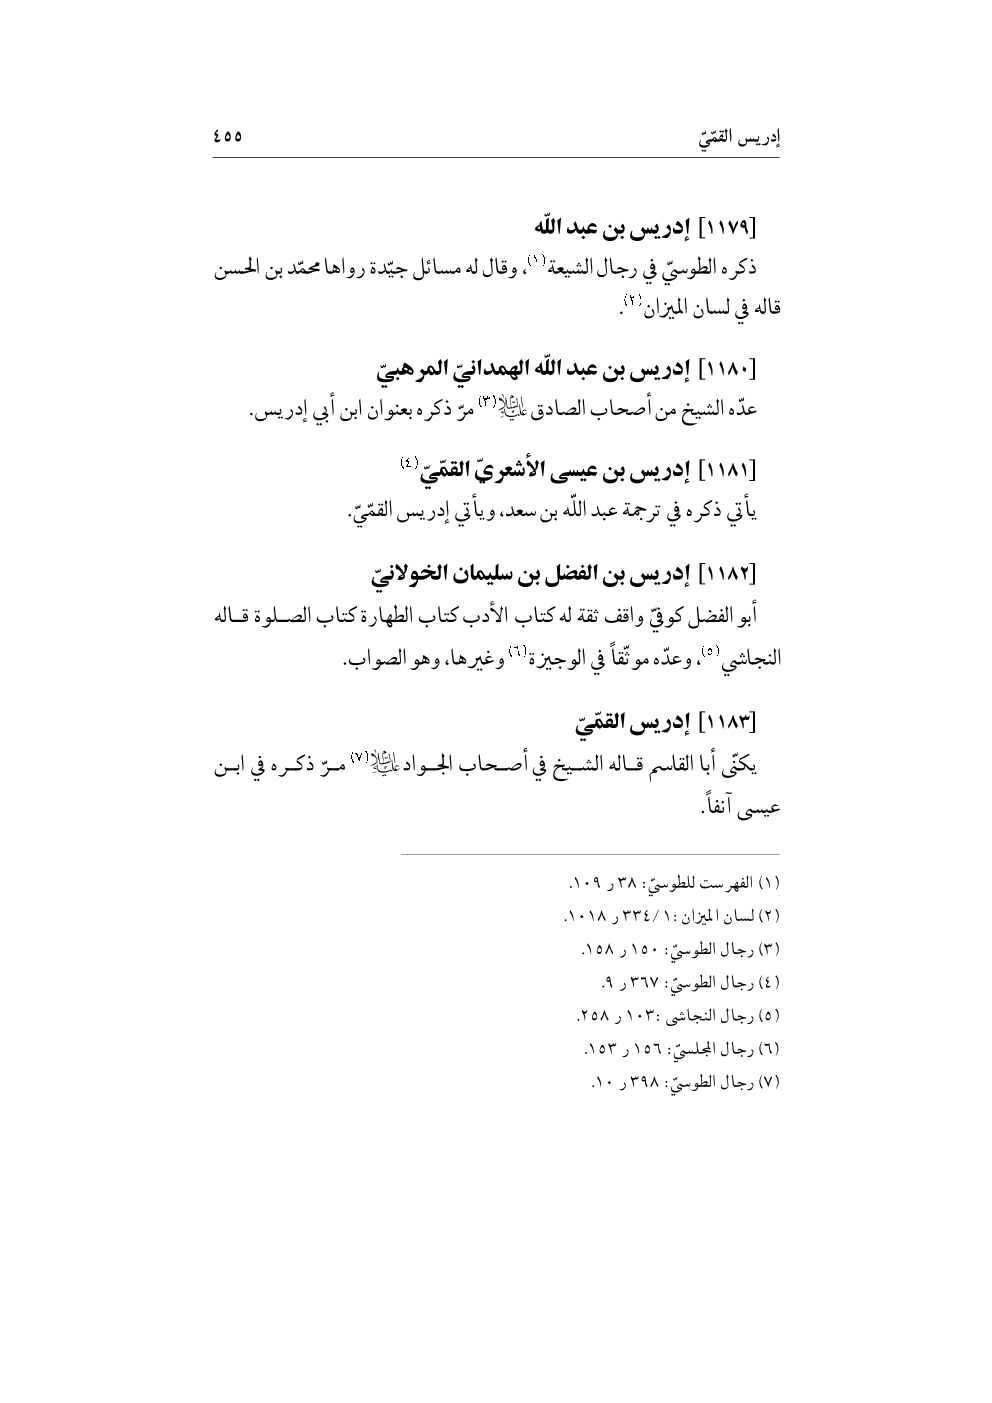 إدريس القمّيّ ٤٥٥
[١١٧٩] إدريس بن عبد اللّه
ذكره الطوسيّ في رجال الشيعة(١)، وقال له مسائل جيّدة رواها محمّد بن الحسن
قاله في لسان الميزان(٢).
[١١٨٠] إدريس بن عبد اللّه الهمدانيّ المرهبيّ
عدّه الشيخ من أصحاب الصادق عليه‌السلام(٣) مرّ ذكره بعنوان ابن أبي إدريس.
[١١٨١] إدريس بن عيسى الأشعريّ القمّيّ(٤)
يأتي ذكره في ترجمة عبد اللّه بن سعد، ويأتي إدريس القمّيّ.
[١١٨٢] إدريس بن الفضل بن سليمان الخولانيّ
أبو الفضل كوفيّ واقف ثقة له كتاب الأدب كتاب الطهارة كتاب الصلوة قاله
النجاشي(٥)، وعدّه موثّقاً في الوجيزة(٦) وغيرها، وهو الصواب.
[١١٨٣] إدريس القمّيّ
يكنّى أبا القاسم قاله الشيخ في أصحاب الجواد عليه‌السلام(٧) مرّ ذكره في ابن
عيسى آنفاً.
(١) الفهرست للطوسيّ: ٣٨ ر ١٠٩.
(٢) لسان الميزان :١/ ٣٣٤ ر ١٠١٨.
(٣) رجال الطوسيّ: ١٥٠ ر ١٥٨.
(٤) رجال الطوسيّ: ٣٦٧ ر ٩.
(٥) رجال النجاشى :١٠٣ ر ٢٥٨.
(٦) رجال المجلسيّ: ١٥٦ ر ١٥٣.
(٧) رجال الطوسيّ: ٣٩٨ ر ١٠.